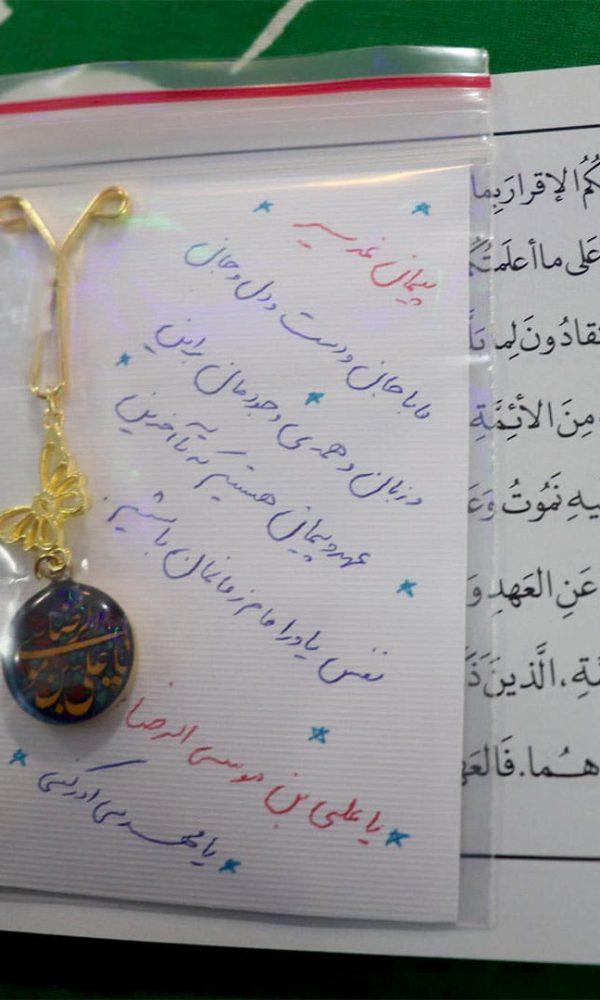 پیمان غدیر
ما با جان و دست و دل و جان
و زبان و همه ی وجودمان بر این
عهد و پیمان هستیم که تا آخرین
نفس یاور امام زمانمان باشیم.
یا علی بن موسی الرضا
یا مهدی ادرکنی
الرضا
یا علی بن موسی
كُمُ الإقرارَ بِما
عَلى ما أعلَمتُكُم
نقادُونَ لِما بَلَّ
مِنَ الأئِمَّةِ
يهِ نَموتُ وَعَ
عَنِ العَهدِ وَ
ـةِ، الَّذينَ ذَ
هُما. فَالعَه